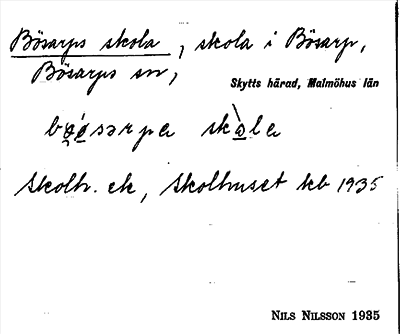 Bösarps skola, skola i Bösarp,
Bösarps sn,
Skytts härad, Malmöhus län
skolh. ek, skolhuset kb 1935
NILS NILSSON 1935